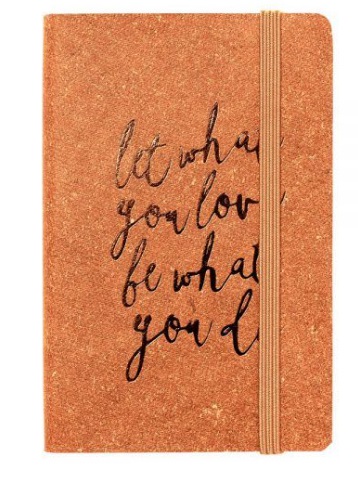 let what
you love
be what
you d